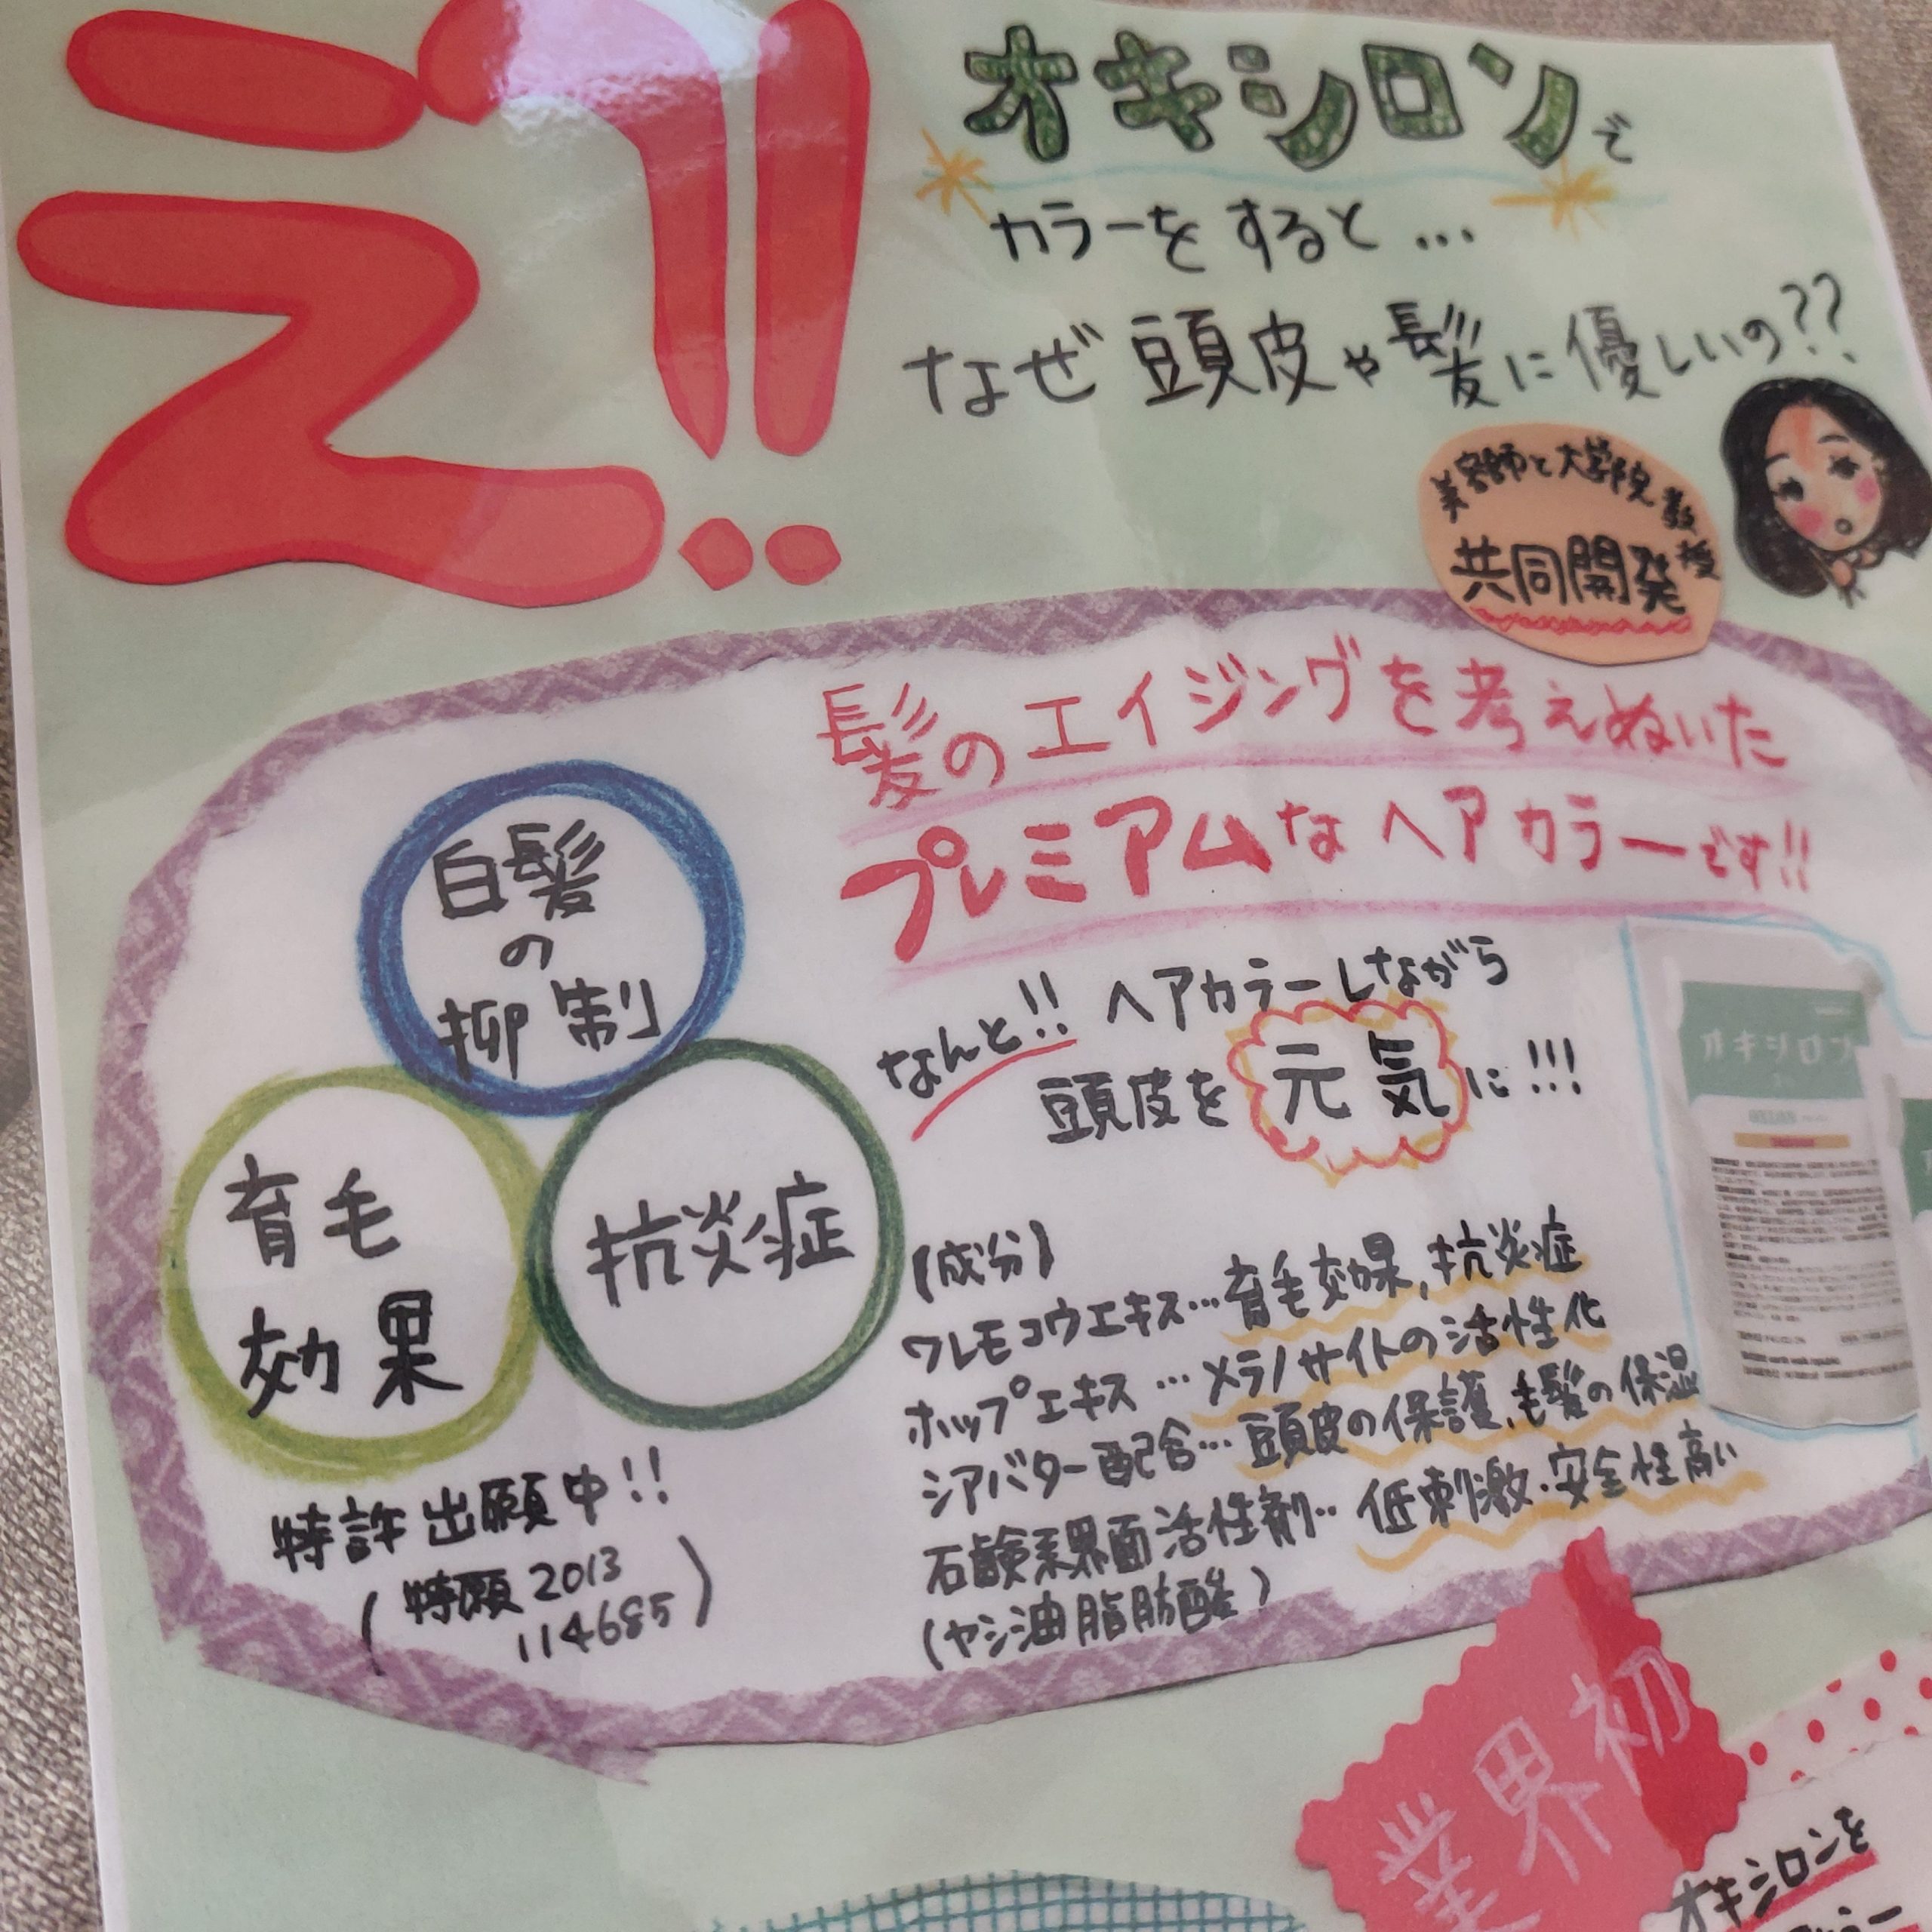 えっ!!
オキシロンで
カラーをすると…
なぜ頭皮や髪に優しいの??
美容師と大学院教授
共同開発
髪のエイジングを考えぬいた
プレミアムなヘアカラーです!!
白髪
の
抑制
育毛
効果
抗炎症
なんと!! ヘアカラーしながら
頭皮を元気に!!!
オキシロン
【成分】
ワレモコウエキス…育毛効果,抗炎症
ホップエキス…メラノサイトの活性化
シアバター配合…頭皮の保護,毛髪の保湿
石鹸系界面活性剤…低刺激・安全性高い
(ヤシ油脂肪酸)
特許出願中!!
(特願2013
114685)
業界初
オキシロンを